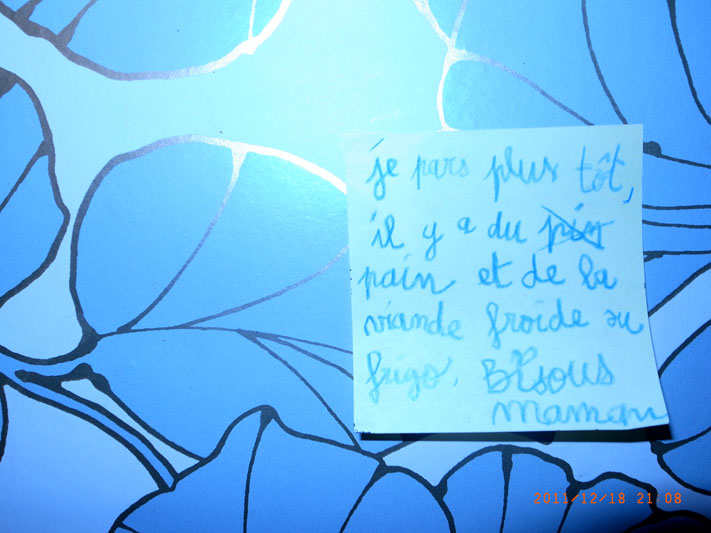 je pars plus tôt,
il y a du
pain et de la
viande froide au
frigo. Bisous
maman
2011/12/18 21:08